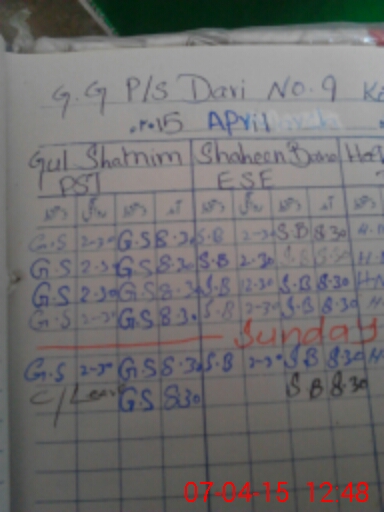 G.G P/S Dari No.9
15 April
Gul Shabnim Shaheen Bano
PST ESE
G.S 2-30 G.S 8.30 S.B 2-30 S.B 8.30 H.N
G.S 2.30 G.S 8.30 S.B 2.30 S.B 8.30 H.N
G.S 2.30 G.S 8.30 S.B 12.30 S.B 8.30 H.N
G.S 2-30 G.S 8.30 S.B 2-30 S.B 8.30 H
Sunday
G.S 2-30 G.S 8.30 S.B 2-30 S.B 8.30 H
C/Leav G S 8.30 S B 8.30
07-04-15 12:48